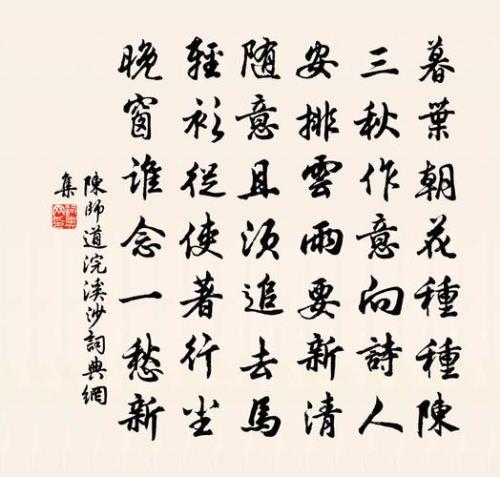 暮葉朝花種種陳
三秋作意向詩人
安排雲雨要新清
隨意且須追去馬
輕衫從使著行尘
晚窗誰念一愁新
陳師道浣溪沙詞典網
集